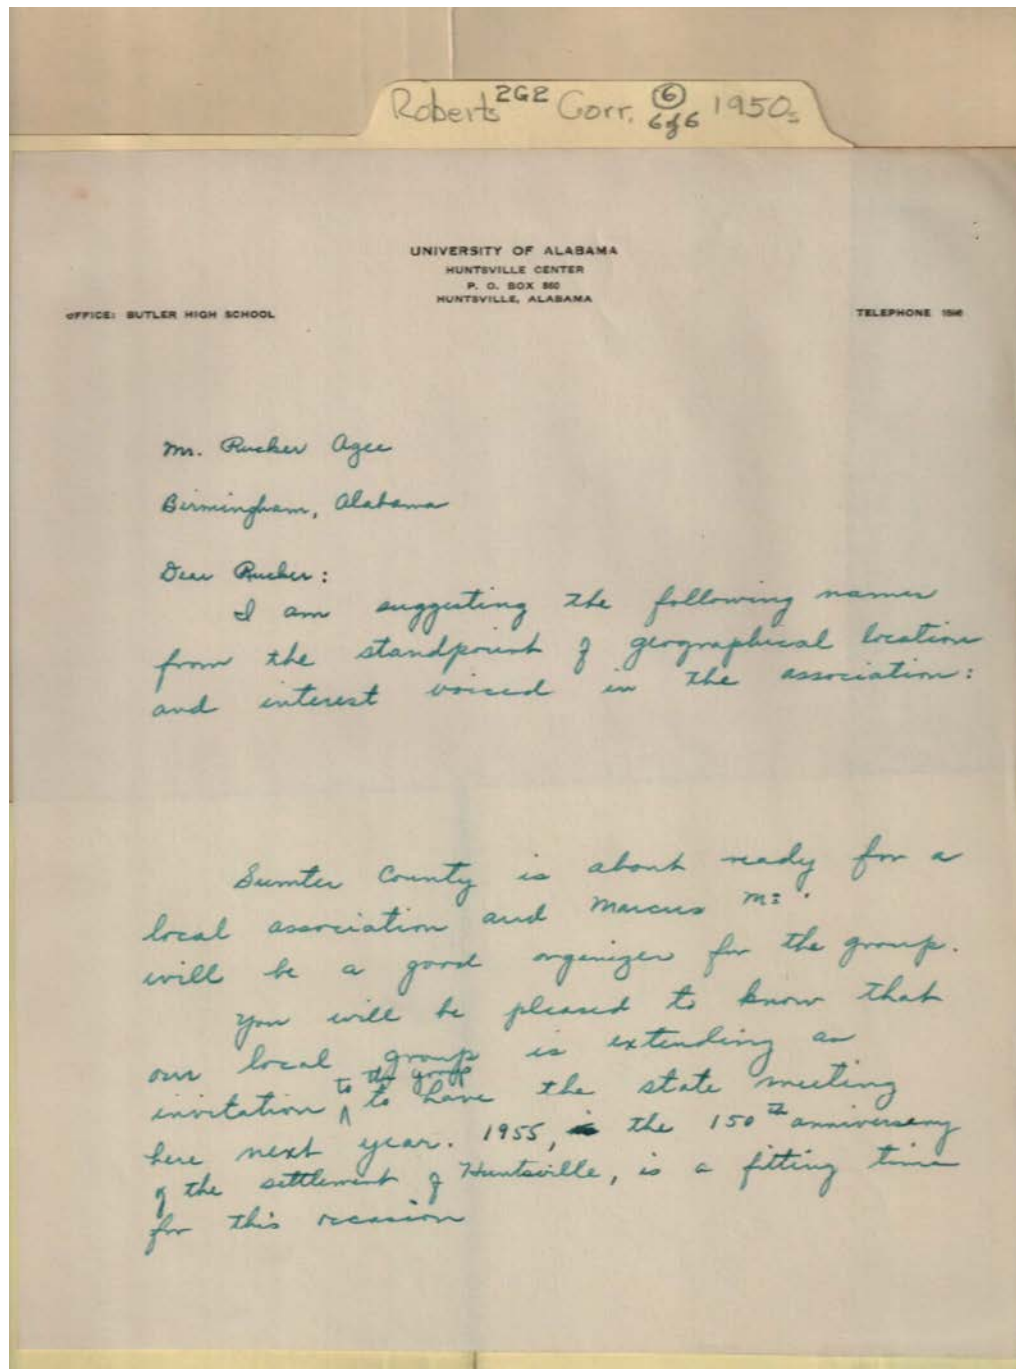 Roberts 2G2 Corr. 6 1950s
6 of 6
UNIVERSITY OF ALABAMA
HUNTSVILLE CENTER
P. O. BOX 860
HUNTSVILLE, ALABAMA
OFFICE: BUTLER HIGH SCHOOL
TELEPHONE
Mr. Rucker Agee
Birmingham, Alabama
Dear Rucker:
I am suggesting the following names
from the standpoint of geographical location
and interest voiced in the association:
Sumter County is about ready for a
local association and Marcus
will be a good organizer for the group.
You will be pleased to know that
our local group is extending an
invitation to the group to have the state meeting
here next year. 1955, the 150th anniversary
of the settlement of Huntsville, is a fitting time
for this occasion